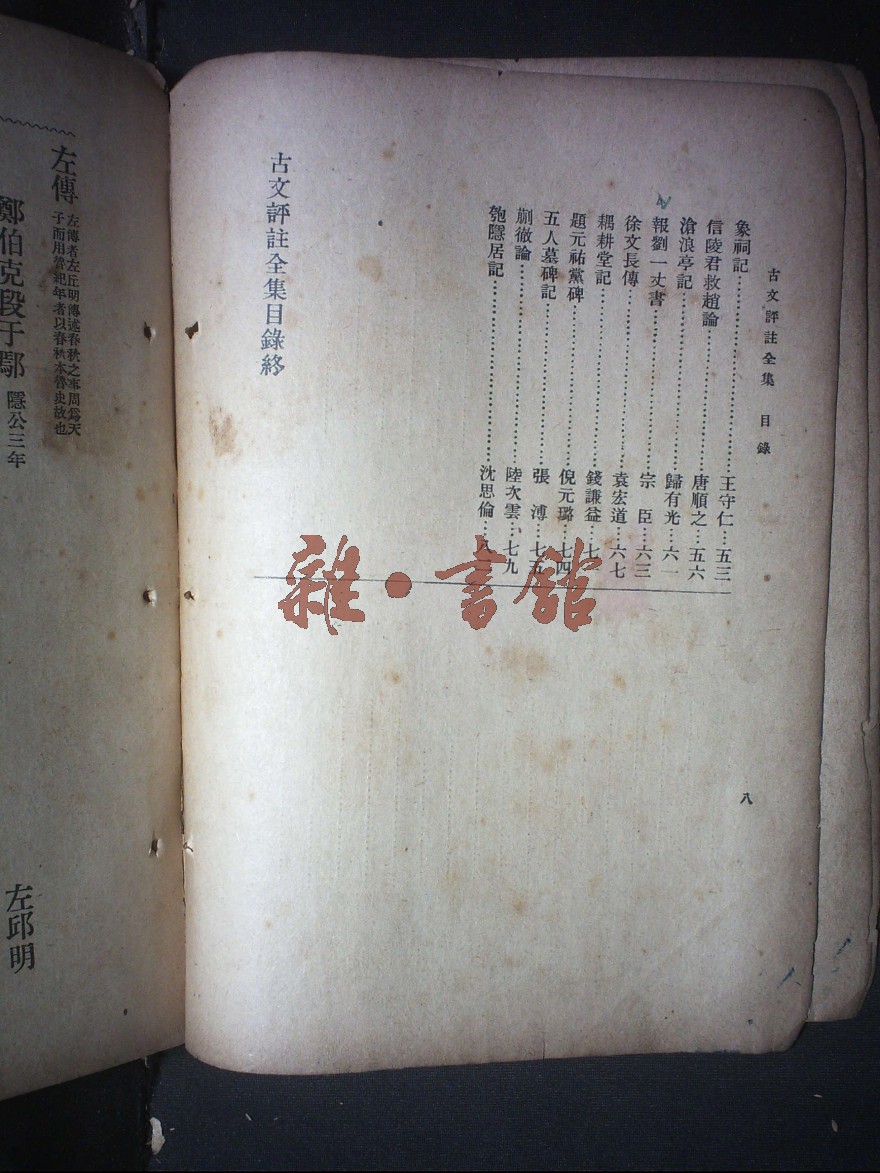 古文評註全集 目錄
象祠記……王守仁…五三
信陵君救趙論……唐順之…五六
滄浪亭記……歸有光…六一
報劉一丈書……宗臣…六三
徐文長傳……袁宏道…六七
耦耕堂記……錢謙益…七
題元祐黨碑……倪元璐…七四
五人墓碑記……張溥…七五
蒯徹論……陸次雲…七九
匏隱居記……沈思倫…八
古文評註全集目錄終
八
左傳 左傳者左丘明傳述春秋之事周爲天
子而用魯紀年者以春秋本魯史故也
鄭伯克段于鄢 隱公三年
左邱明
雜·書館